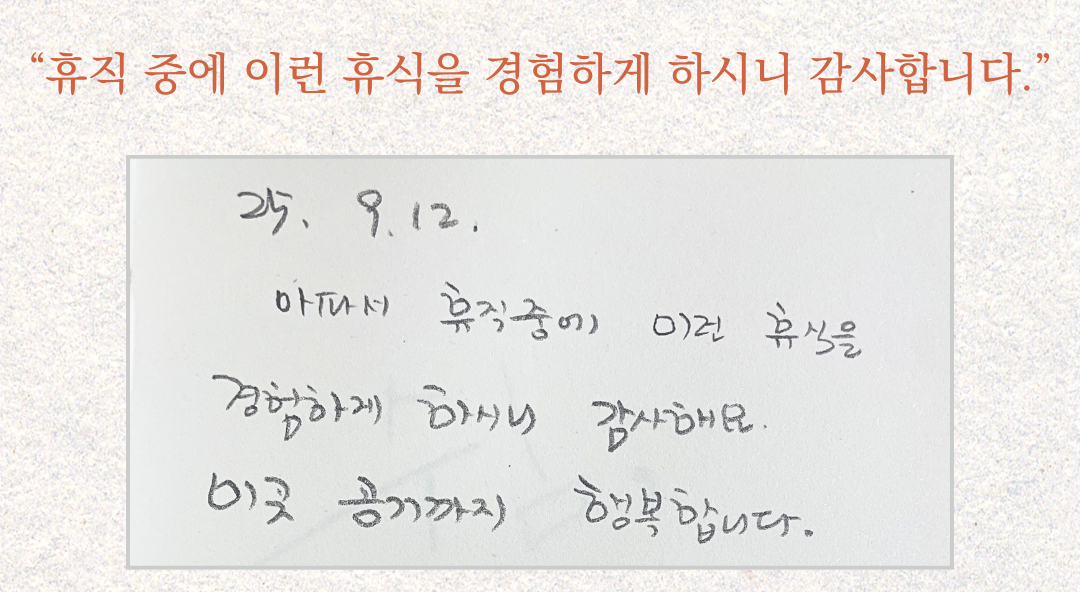 “휴직 중에 이런 휴식을 경험하게 하시니 감사합니다.”
25. 9. 12.
아파서 휴직중에 이런 휴식을
경험하게 하시니 감사해요.
이곳 공기까지 행복합니다.